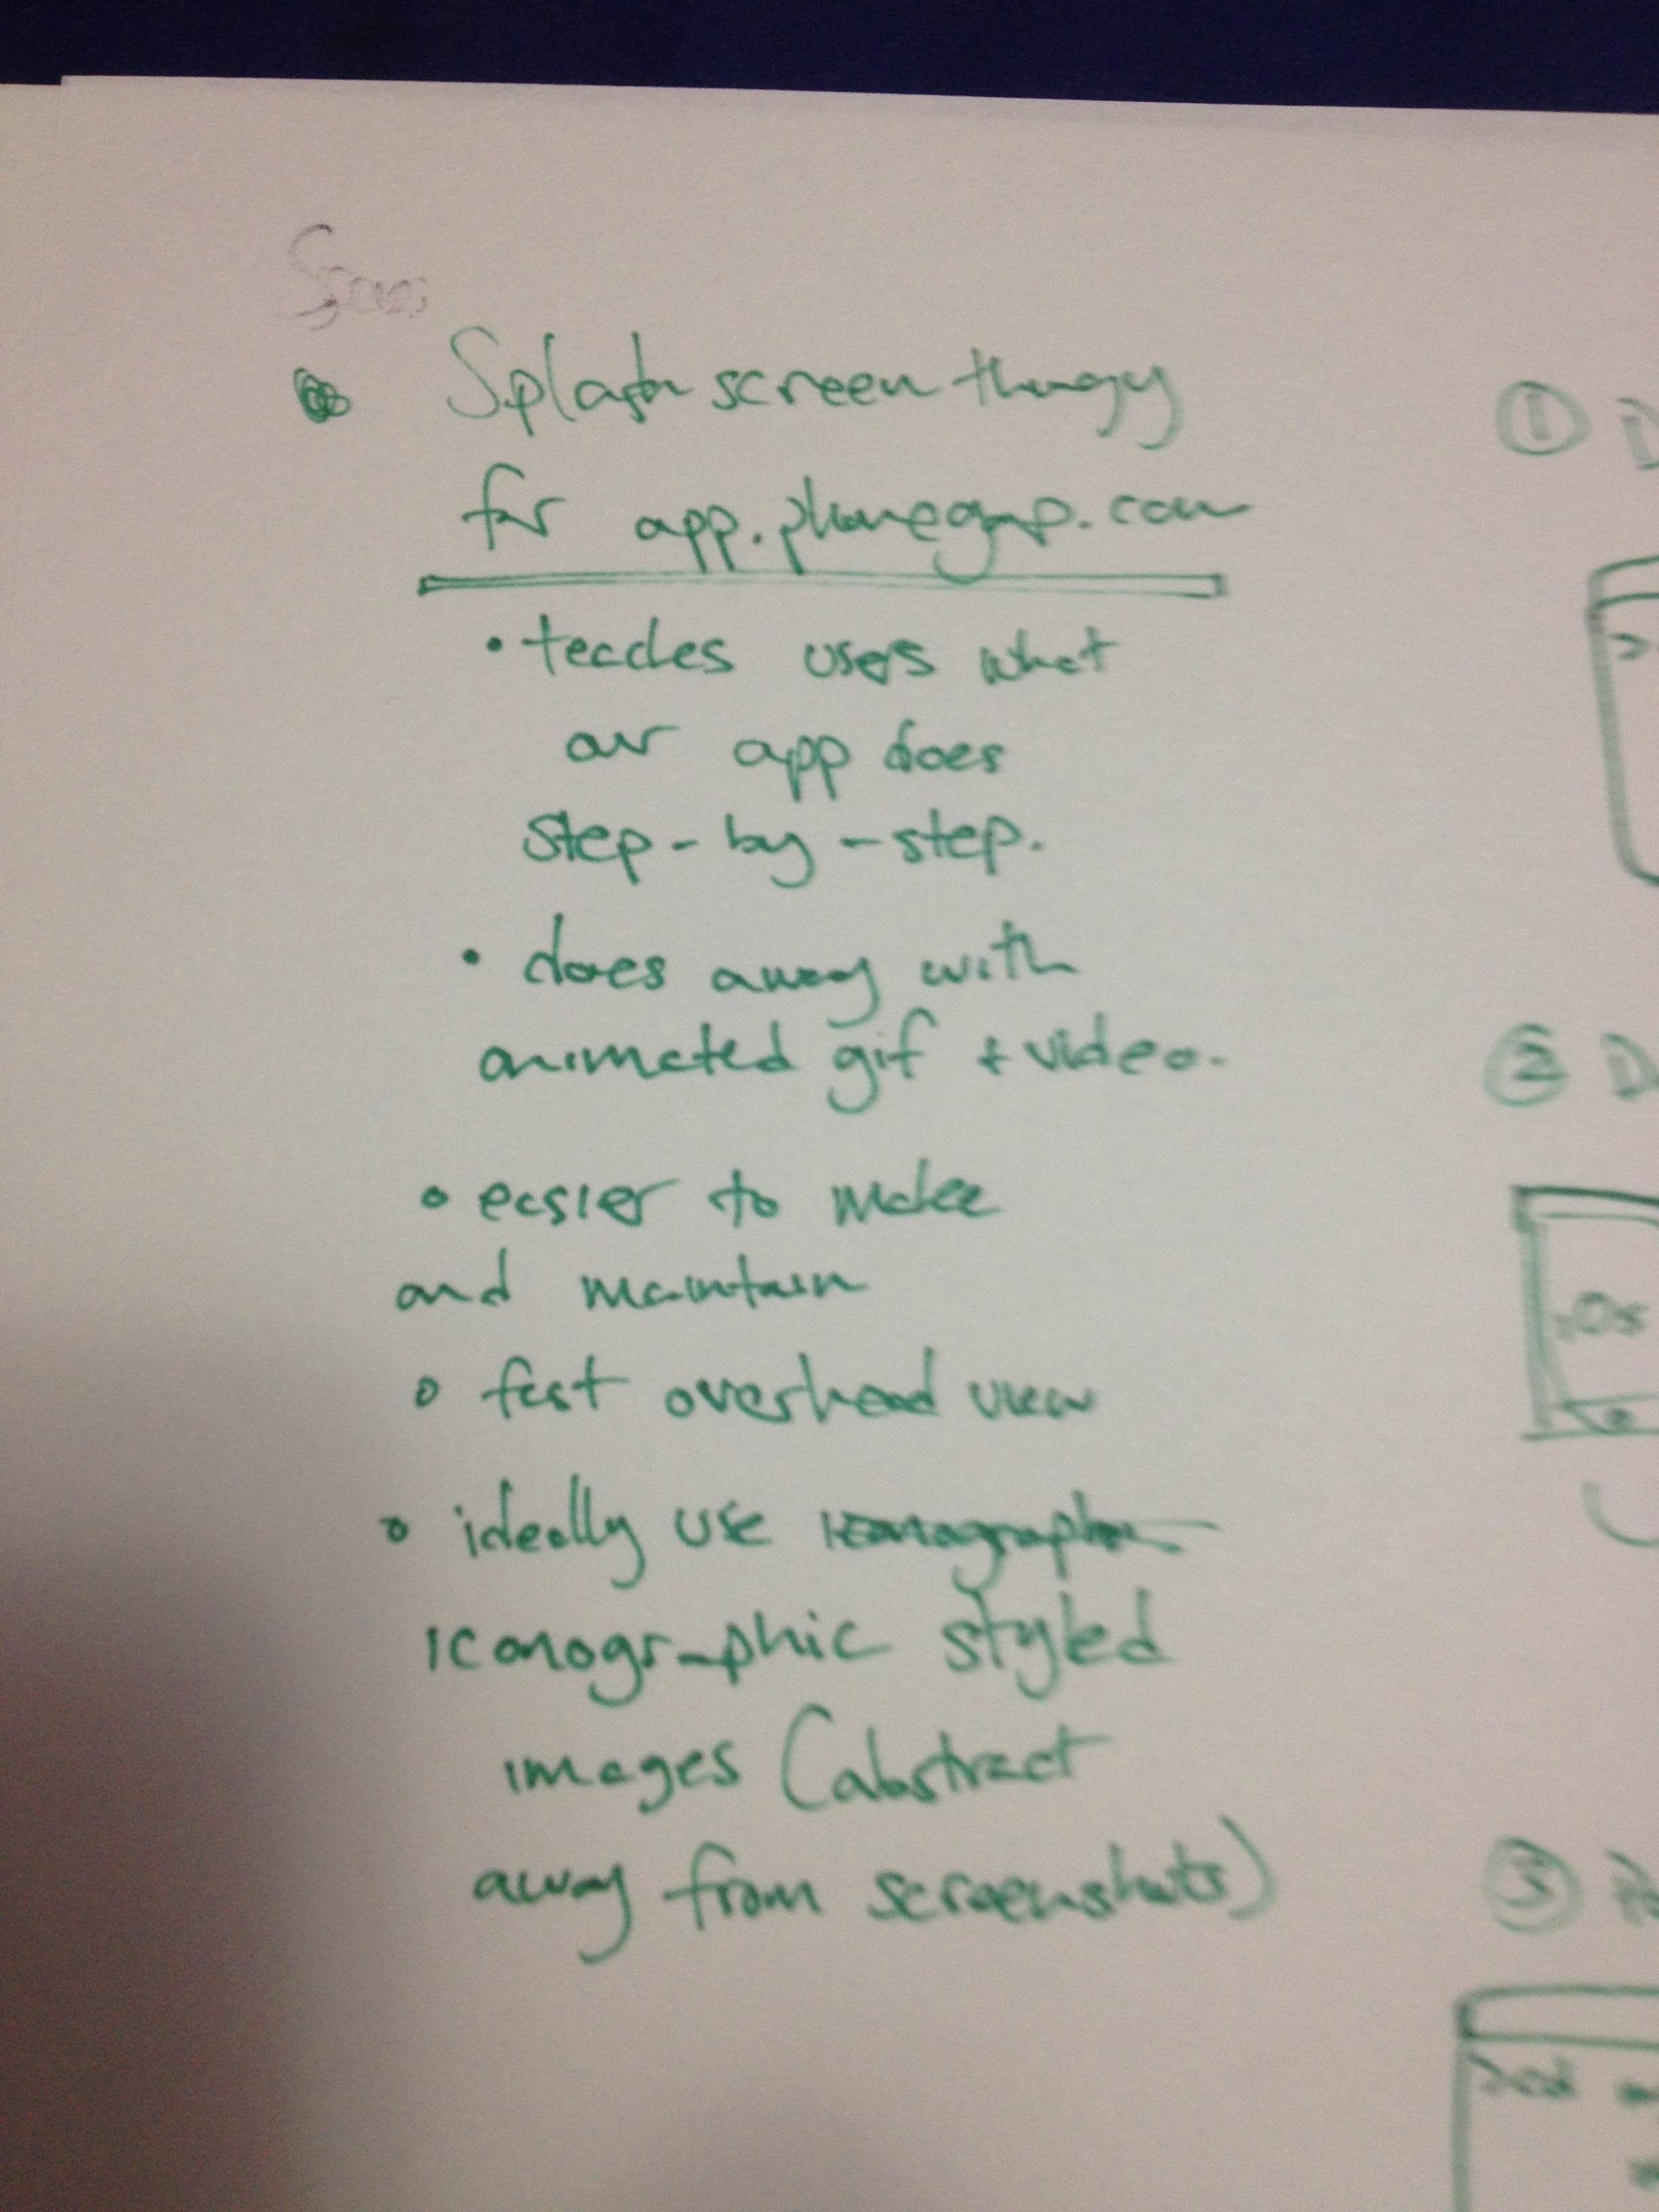 Splash screen thingy
for app.phonegap.com
• teaches users what
our app does
step-by-step.
• does away with
animated gif + video.
• easier to make
and maintain
• fast overhead view
• ideally use
iconographic styled
images (abstract
away from screenshots)
① D
② D
iOS
③